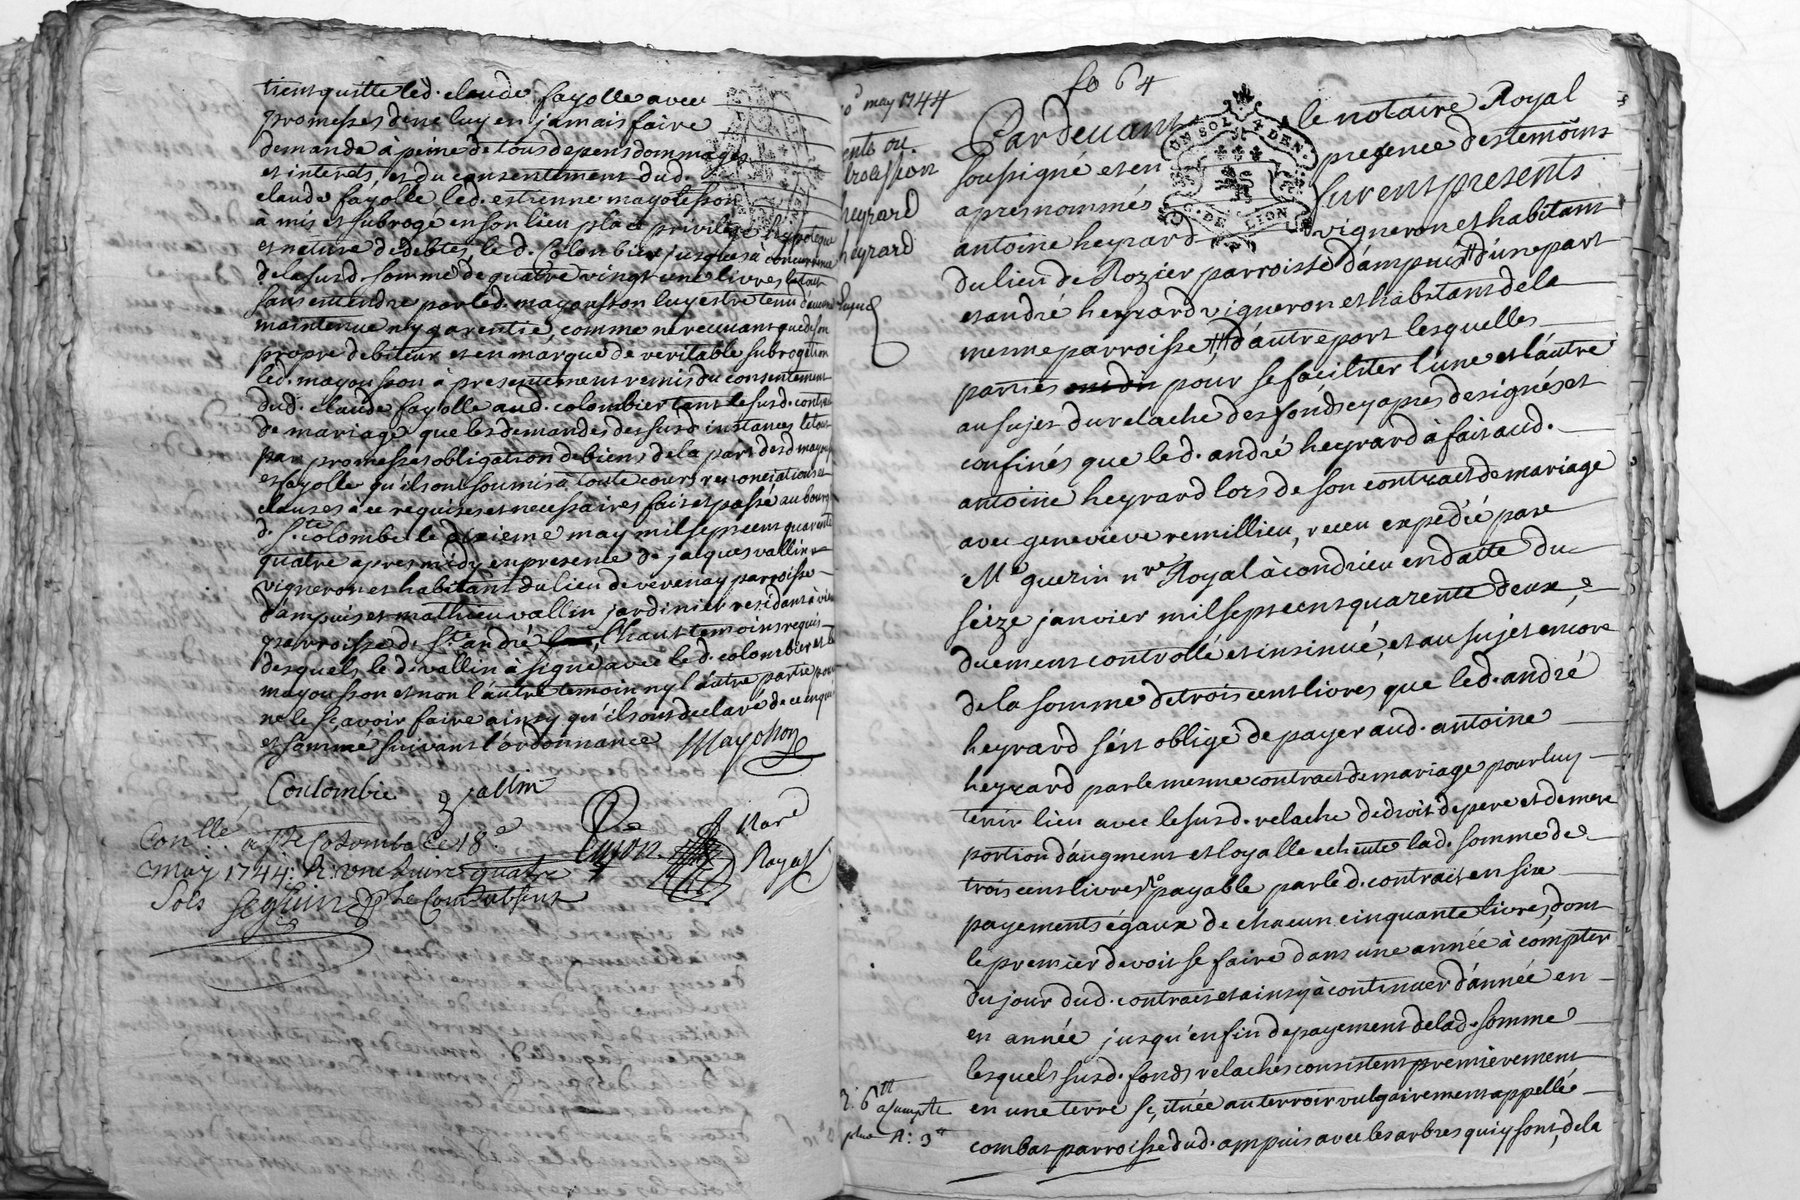 tient quitte led. claude fayolle avec
promesses de ne luy en jamais faire
demande à peine de tous depens dommages
et interets, et du consentement dud.
claude fayolle led. estienne mayousson
a mis et subrogé en son lieu place privilege hypoteque
et nature de debtes led. Colombier jusques à concurrence
de la susd. somme de quatre vingt une livres le tout
sans entendre par led. mayousson luy estre tenu d'aucune
maintenue ny garentie comme ne recevant que de son
propre debiteur et en marque de veritable subrogation
led. mayousson à presentement remis du consentement
dud. claude fayolle aud. colombier tant le susd. contrat
de mariage que les demandes des susd instances le tout
par promesses obligation de biens de la part desd mayousson
et fayolle qu'ils ont soumis à toute cours renonciations et
clauses à ce requises et necessaires fait et passé au bourg
de Ste colombe le dixieme may mil sept cent quarente
quatre apres midy en presence de jacques vallin
vigneron et habitant du lieu de verenay parroisse
d'ampuis et mathieu vallin jardinier residant à vienne
parroisse de St. andré le haut temoins requis
desquels le d. vallin à signé avec le d. colombier et led.
mayousson et non l'autre temoin ny l'autre partie pour
ne le sçavoir faire ainsy qu'ils ont declaré de ce enquis
et sommé suivant l'ordonnance Mayosson
Coulombie vallin
No.re
Royal
Con.llé à Ste Colombe le 18e
may 1744: R. une livre quatre
sols seguin
may 1744
heyrard
heyrard
fo 64
UN SOL 4 DEN.
G. DE LION
Pardevant le notaire Royal
soussigné et en presence des temoins
apres nommés furent presents
antoine heyrard vigneron et habitant
du lieu de Rozier parroisse d'ampuis d'une part
et andré heyrard vigneron et habitant de la
mesme parroisse d'autre part lesquelles
parties pour se faciliter l'une et l'autre
au sujet du relache des fonds cy apres designés et
confinés que led. andré heyrard à fait aud.
antoine heyrard lors de son contract de mariage
avec genevieve remillieu, receu expedié par
Me guerin nre Royal à condrieu en datte du
seize janvier mil sept cent quarente deux,
duement controllé et insinué, et au sujet encore
de la somme de trois cent livres que led. andré
heyrard s'est obligé de payer aud. antoine
heyrard par le mesme contract de mariage pour luy
tenir lieu avec le susd. relache de droit de pere et de mere
portion d'augment et loyalle echeute lad. somme de
trois cent livres payable par led. contract en six
payements égaux de chacun cinquante livres, dont
le premier devoit se faire dans une année à compter
du jour dud. contract et ainsy à continuer d'année en
en année jusqu'en fin de payement de lad. somme
lesquels susd. fonds relachés consistent premierement
en une terre scituée au terroir vulgairement appellé
combat parroisse dud. ampuis avec les arbres qui y sont, de la